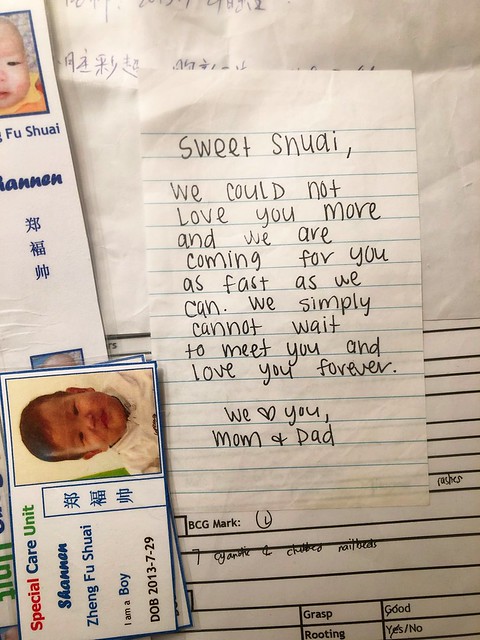 g Fu Shuai
hannen
郑
福
帅
Sweet Shuai,
We could not
love you more
and we are
coming for you
as fast as we
can. We simply
cannot wait
to meet you and
love you forever.
We ♡ you,
Mom & Dad
Special Care Unit
Shannen
郑 福 帅
Zheng Fu Shuai
I am a Boy
DOB 2013-7-29
rashes
BCG Mark: L
cyanotic & clubbed nailbeds
Grasp Good
Rooting Yes/No